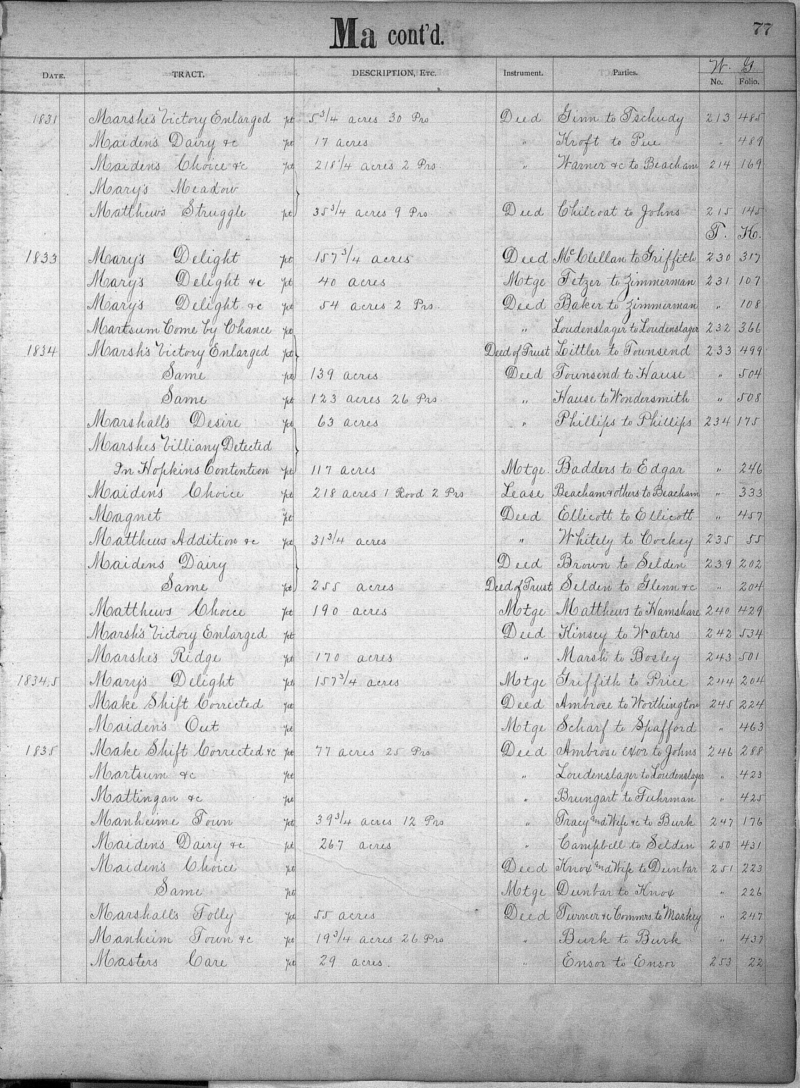 Ma cont'd.
77
DATE. TRACT. DESCRIPTION, Etc. Instrument. Parties. W. G.
No. Folio.
1831 Marshe's Victory Enlarged pt 5 3/4 acres 30 Prs Deed Ginn to Tschudy 213 485
Maidens Dairy &c pt 17 acres " Kroft to Pue " 489
Maidens Choice &c pt 218 1/4 acres 2 Prs " Warner &c to Beacham 214 169
Mary's Meadow
Matthews Struggle pt 35 3/4 acres 9 Prs Deed Chilcoat to Johns 215 145
T. K.
1833 Mary's Delight pt 157 3/4 acres Deed McClellan to Griffith 230 317
Mary's Delight &c pt 40 acres Mtge Fetzer to Zimmerman 231 107
Mary's Delight &c pt 54 acres 2 Prs Deed Baker to Zimmerman " 108
Martsum Come by Chance pt " Loudenslager to Loudenslager 232 366
1834 Marsh's Victory Enlarged pt Deed of Trust Littler to Townsend 233 499
Same pt 139 acres Deed Townsend to Hause " 504
Same pt 123 acres 26 Prs " Hause to Wondersmith " 508
Marshalls Desire pt 63 acres " Phillips to Phillips 234 175
Marshes Villiany Detected
In Hopkins Contention pt 117 acres Mtge Badders to Edgar " 246
Maidens Choice pt 218 acres 1 Rood 2 Prs Lease Beacham & others to Beacham " 333
Magnet pt Deed Ellicott to Ellicott " 457
Matthews Addition &c pt 31 3/4 acres " Whitely to Cockey 235 55
Maidens Dairy Deed Brown to Selden 239 202
Same pt 255 acres Deed of Trust Selden to Glenn &c " 204
Matthews Choice pt 190 acres Mtge Matthews to Hamshare 240 429
Marsh's Victory Enlarged pt Deed Kinsey to Waters 242 534
Marshe's Ridge pt 170 acres " Marsh to Bosley 243 501
1834.5 Mary's Delight pt 157 3/4 acres Mtge Griffith to Price 244 204
Make Shift Corrected pt Deed Ambrose to Worthington 245 224
Maiden's Out pt Mtge Scharf to Spafford " 463
1835 Make Shift Corrected &c pt 77 acres 25 Prs Deed Ambrose Exor to Johns 246 288
Martsum &c pt " Loudenslager to Loudenslager " 423
Mattingan &c pt " Brungart to Fuhrman " 425
Manheime Town pt 39 3/4 acres 12 Prs " Tracy and Wife &c to Burk 247 176
Maidens Dairy &c pt 267 acres " Campbell to Selden 250 431
Maiden's Choice pt Deed Knox and Wife to Dunbar 251 223
Same pt Mtge Dunbar to Knox " 226
Marshalls Folly pt 55 acres Deed Turner &c Commrs to " 247
Manheim Town &c pt 19 3/4 acres 26 Prs " Burk to Burk " 437
Masters Care pt 29 acres. " Ensor to Ensor 253 22